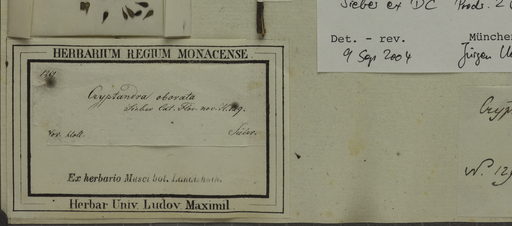 Sieber ex DC Prodr. 2
Det. - rev. München
9 Sep 2004 Jürgen
HERBARIUM REGIUM MONACENSE
Cryptandra obovata
Sieber. Fl. nov. Holl.
Nov. Holl. Sieber.
Ex herbario Musei bot. Landishuth.
Herbar Univ. Ludov Maximil
Cryp
N. 12